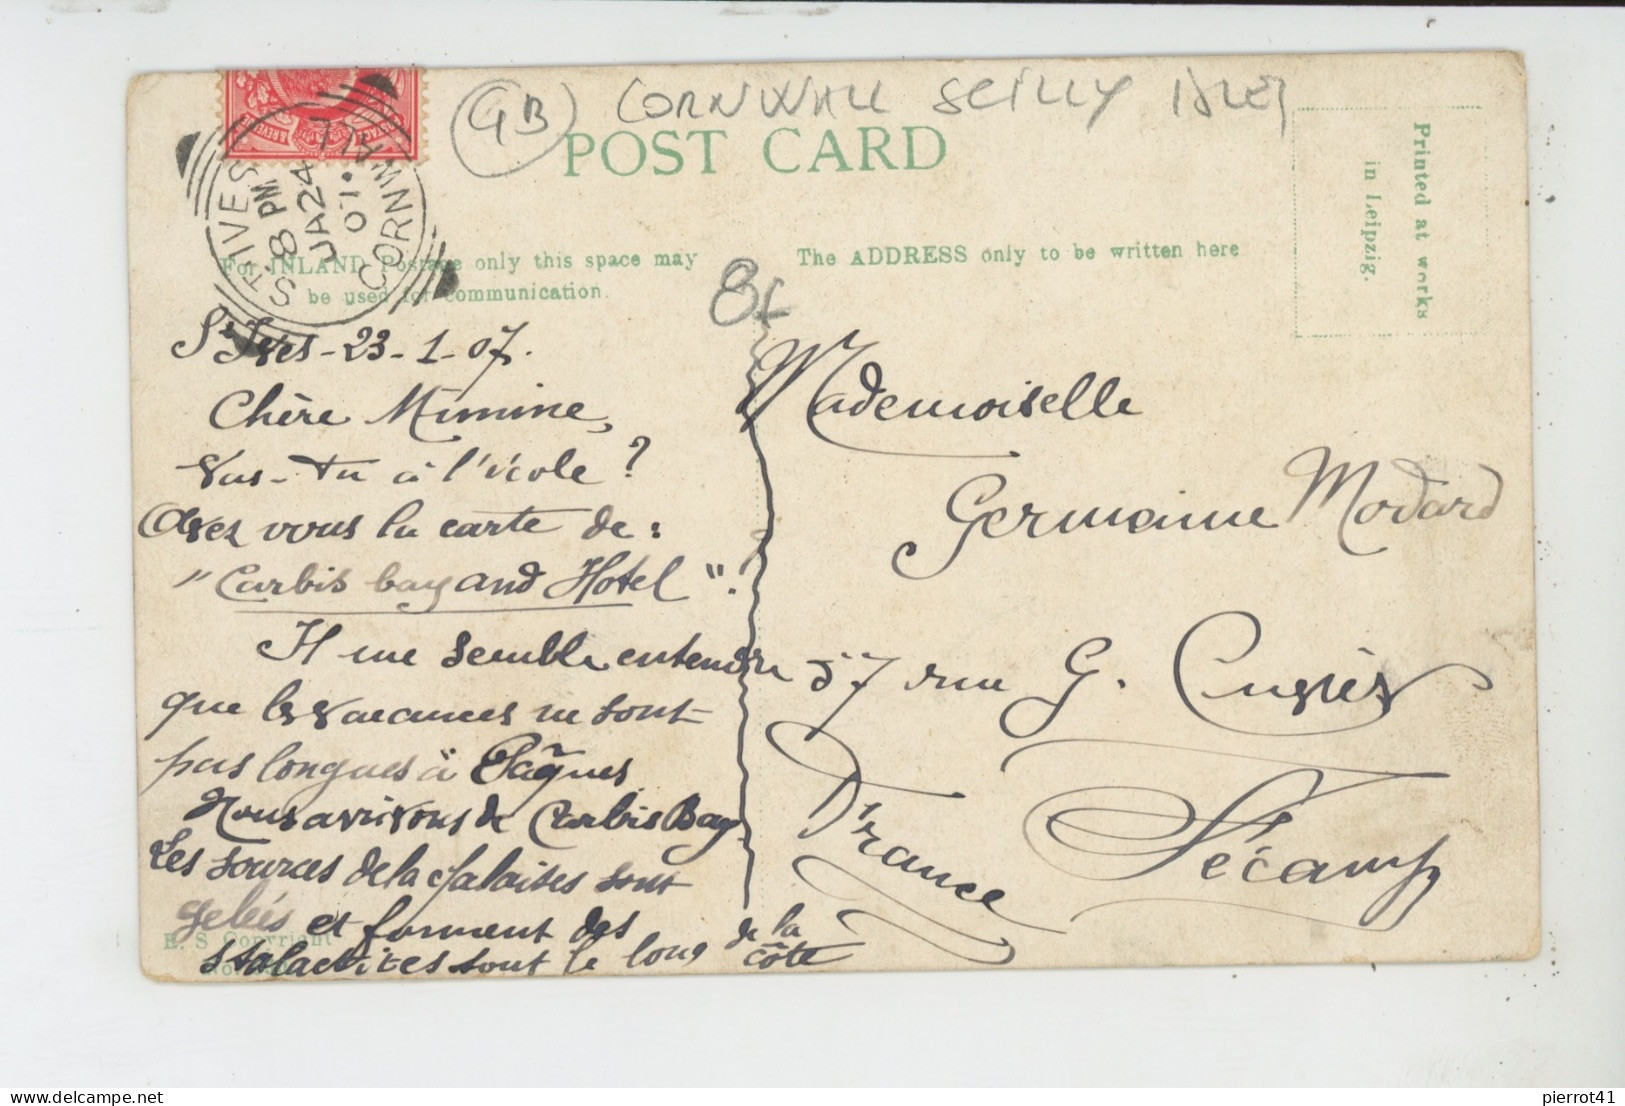 GB CORNWALL SCILLY ISLES
POST CARD
Printed at works
in Leipzig.
POSTAGE & REVENUE
ST. IVES CORNWALL
8 PM
JA 24
07
For INLAND Postage only this space may
be used for communication.
The ADDRESS only to be written here
8f
St Ives - 23 - 1 - 07.
Chère Mimine,
Vas-tu à l'école ?
Avez vous la carte de :
"Carbis bay and Hotel" .
Il me semble entendre
que les vacances ne sont
pas longues à Pâques
Nous arrivons de Carbis Bay
Les sources de la falaises sont
gelées et forment des
stalactites sont le long de la côte
E. S Copyright
Mademoiselle
Germaine Modard
57 rue G. Cuvier
Fécamp
France
pierrot41